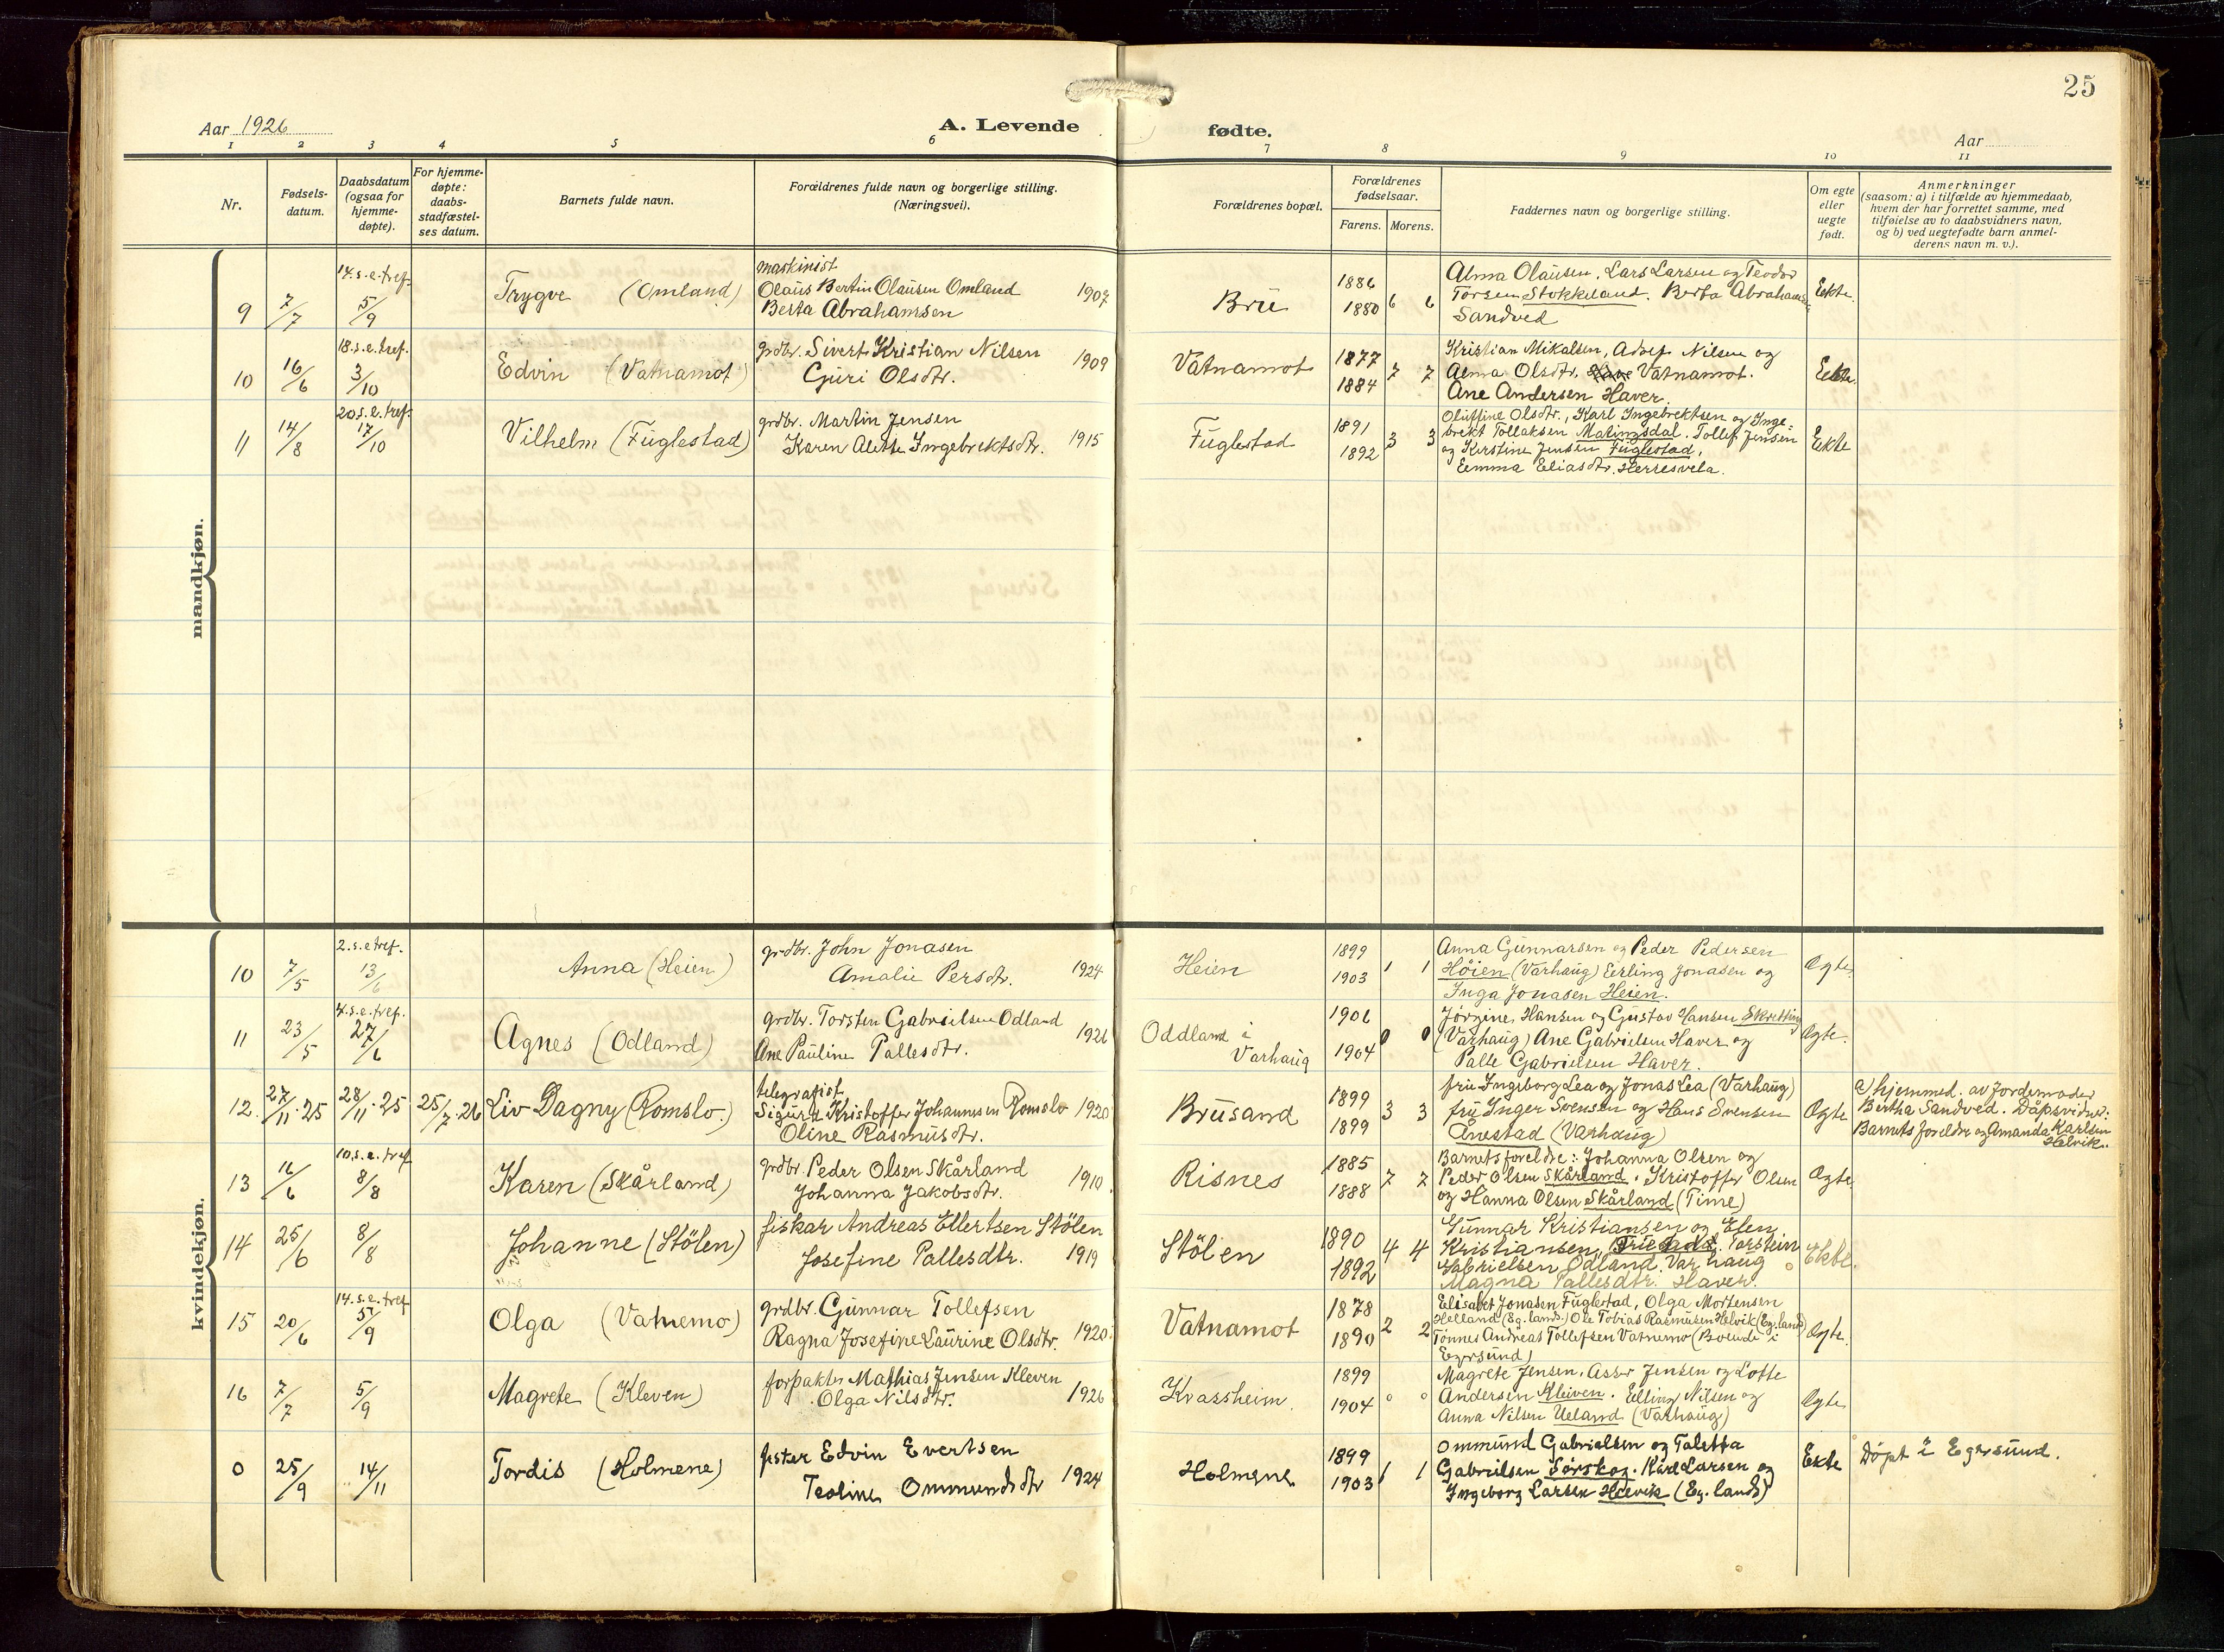 25
Aar 1926
A. Levende
fødte.
Aar
1 2 3 4 5 6 7 8 9 10 11
Nr.
Fødsels-
datum.
Daabsdatum
(ogsaa for
hjemme-
døpte).
For hjemme-
døpte:
daabs-
stadfæstel-
ses datum.
Barnets fulde navn.
Forældrenes fulde navn og borgerlige stilling.
(Næringsvei).
Forældrenes bopæl.
Forældrenes
fødselsaar.
Farens. Morens.
Faddernes navn og borgerlige stilling.
Om egte
eller
uegte
født.
Anmerkninger
(saasom: a) i tilfælde av hjemmedaab,
hvem der har forrettet samme, med
tilføielse av to daabsvidners navn,
og b) ved uegtefødte barn anmel-
derens navn m. v.).
mandkjøn.
9 7/7 14. s. e. tref. 5/9 Trygve (Omland)
maskinist
Olaus Bertin Olausen Omland 1907
Berta Abrahamsen
Brü 1886 1880 6 6
Alma Olausen, Lars Larsen og Teodor
Torsen Stokkeland. Berta Abrahams
Sandved
Eekte.
10 16/6 18. s. e. tref. 3/10 Edvin (Vatnamot)
grdbr. Sivert Kristian Nilsen 1909
Guri Olsdtr.
Vatnamot 1877 1884 7 7
Kristian Mikalsen, Adolf Nilsen og
Alma Olsdtr. Vatnamot.
Ane Andersen Haver.
Eekte.
11 14/8 20. s. e. tref. 17/10 Vilhelm (Fuglestad)
grdbr. Martin Jensen
Karen Alette Ingebrektsdtr. 1915
Fuglestad 1891 1892 3 3
Oluffine Olsdtr., Karl Ingebrektsen og Inge-
brekt Tollaksen Matingsdal. Tollef Jensen
og Kirstine Jensen Fuglestad.
Eemma Eliasdtr. Herresvela.
Eekte
kvindekjøn.
10 7/5 2. s. e tref. 13/6 Anna (Heien)
grdbr. John Jonasen
Amalie Persdtr. 1924
Heien 1899 1903 1 1
Anna Gunnarsen og Peder Pedersen
Höien (Varhaug) Eerling Jonasen og
Inga Jonasen Heien.
Ægte.
11 23/5 4. s. e. tref. 27/6 Agnes (Odland)
grdbr. Torsten Gabrielsen Odland 1926
Ane Pauline Pallesdtr.
Oddland i
Varhaug 1906 1904 0 0
Jörgine Hansen og Gustav Hansen Skretting
(Varhaug) Ane Gabrielsen Haver og
Palle Gabrielsen Haver.
Ægte.
12. 27/11. 25 28/11. 25 25/7. 26 Liv Dagny (Romslo.)
telegrafist
Sigurd Kristoffer Johannesen Romslo 1920
Oline Rasmusdtr.
Brusand 1899 1899 3 3
fru Ingeborg Lea og Jonas Lea (Varhaug)
fru Inger Svensen og Hans Svensen
Ånestad (Varhaug)
Ægte
a) hjemmed. av Jordemoder
Bertha Sandved. Dåpsvidner:
Barnets foreldre og Amanda Karlsen
Helvik.
13 16/6 10. s. e. tref 8/8 Karen (Skårland)
grdbr. Peder Olsen Skårland
Johanna Jakobsdtr. 1910.
Risnes 1885 1888 7 7
Barnets foreldre: Johanna Olsen og
Peder Olsen Skårland. Kristoffer Olsen
og Hanna Olsen Skårland (Time)
Ægte
14 25/6 8/8 Johanne (Stölen)
fiskar Andreas Ellertsen Stölen
Josefine Pallesdtr. 1919
Stölen 1890 1892 4 4
Gunnar Kristiansen og Elen
Kristiansen, Torstein
Gabrielsen Odland. Varhaug
Magna Pallesdtr. Haver.
Ekte.
15 20/6 14. s. e. tref 5/9 Olga (Vatnemo)
grdbr. Gunnar Tollefsen
Ragna Josefine Laurine Olsdtr. 1920.
Vatnamot 1878 1890 2 2
Elisabet Jonasen Fuglestad, Olga Mortensen
Helland (Eg. lands.) Ole Tobias Rasmusen Helvik (Eg. land)
Tönnes Andreas Tollefsen Vatnemo (Boende i
Egersund)
Ægte.
16 7/7 5/9 Magrete (Kleven)
forpakter Mathias Jensen Kleven
Olga Nilsdtr. 1926
Kvassheim. 1899 1904 0 0
Magrete Jensen, Asser Jensen og Lotte
Andersen Kleiven. Elling Nilsen og
Anna Nilsen Ueland (Varhaug)
Ægte
0 25/9 14/11 Tordis (Holmene)
fisker Edvin Evertsen
Teoline Ommundsdtr 1924
Holmene 1899 1903 1 1
Ommund Gabrielsen og Taletta
Gabrielsen Sörskog. Karl Larsen og
Ingeborg Larsen Helvik (Eg. lands)
Ekte
Döpt i Egersund.